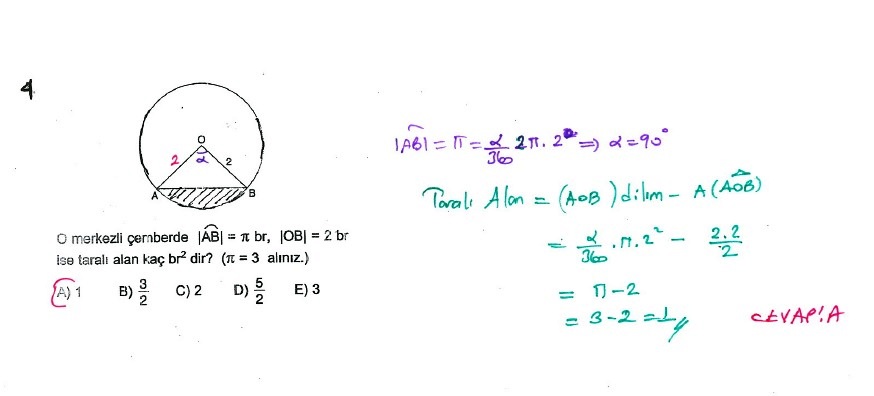 4
O
2 α 2
A B
O merkezli çemberde |AB| = π br, |OB| = 2 br
ise taralı alan kaç br² dir? (π = 3 alınız.)
A) 1 B) 3/2 C) 2 D) 5/2 E) 3
|AB| = π = α/360 2π. 2 => α = 90°
Taralı Alan = (AOB) dilim - A(AOB)
= α/360 . π. 2² - 2.2/2
= π - 2
= 3 - 2 = 1
CEVAP: A